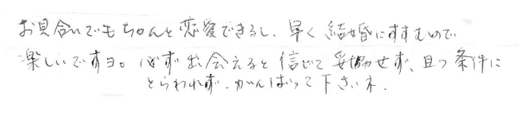 お見合いでもちゃんと恋愛できるし、早く結婚にすすむので
楽しいですヨ。必ず出会えると信じて妥協せず、且つ条件に
とらわれず、がんばって下さいネ.